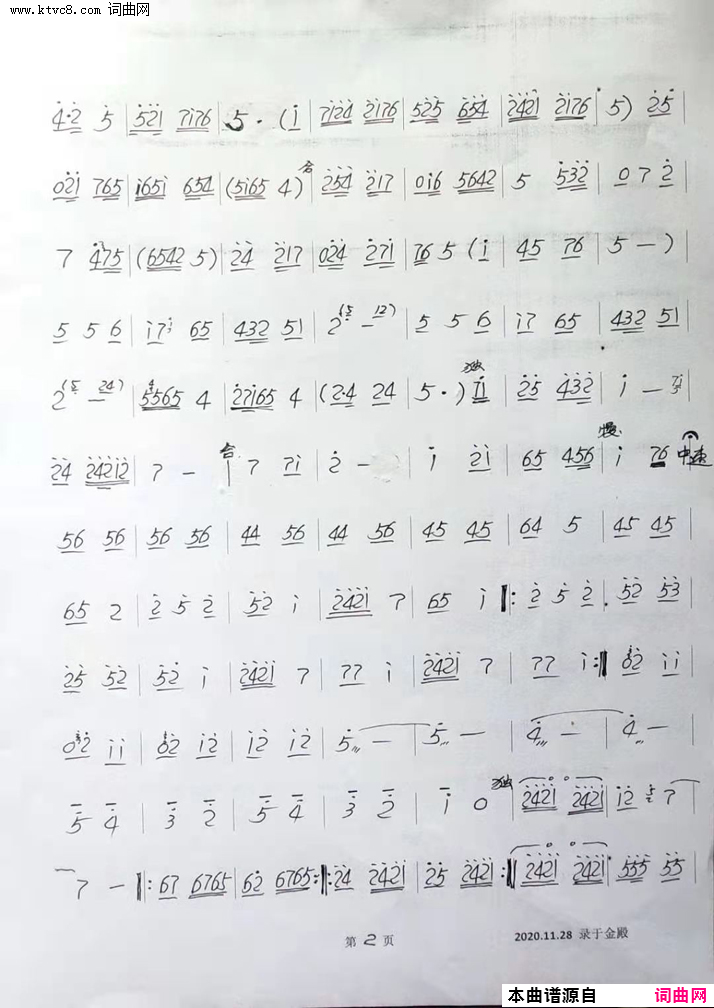 www.ktvc8.com 词曲网
4·2 5 | 521 7176 | 5· (1 | 7124 2176 | 525 654 | 2421 2176 | 5) 25 |
021 765 | 1651 654 | (5165 4) 合 254 217 | 016 5642 | 5 532 | 0 7 2 |
7 475 | (6542 5) | 24 217 | 024 271 | 76 5 (1 | 45 76 | 5 — )
5 5 6 | 17 65 | 432 51 | 2 — | 5 5 6 | 17 65 | 432 51 |
2 — | 5565 4 | 27165 4 | (2·4 24 | 5·) 独 | 25 432 | 1 —
24 24212 | 7 — 合 | 7 71 | 2 — | 1 21 | 65 456 | 慢 1 76 中速
56 56 | 56 56 | 44 56 | 44 56 | 45 45 | 64 5 | 45 45 |
65 2 | 2 5 2 | 52 1 | 2421 7 | 65 1 ‖: 2 5 2 | 52 53 |
25 52 | 52 1 | 2421 7 | 77 1 | 2421 7 | 77 1 :‖ 02 11 |
02 11 | 02 12 | 12 12 | 5 — | 5 — | 4 — | 4 — |
5 4 | 3 2 | 5 4 | 3 2 | 1 0 独 | 2421 2421 | 12 7
7 — ‖: 67 6765 | 62 6765 :‖: 24 2421 | 25 2421 :‖ 2421 2421 | 555 55 |
第 2 页
2020.11.28 录于金殿
本曲谱源自 词曲网